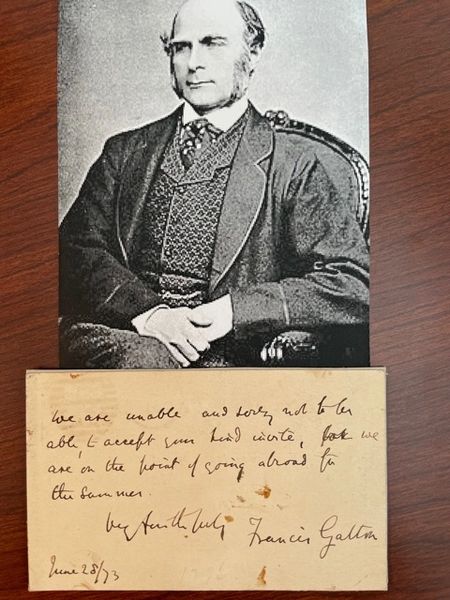 We are unable and sorry not to be
able to accept your kind invite, for we
are on the point of going abroad for
the summer.
Very faithfully Francis Galton
June 28/73